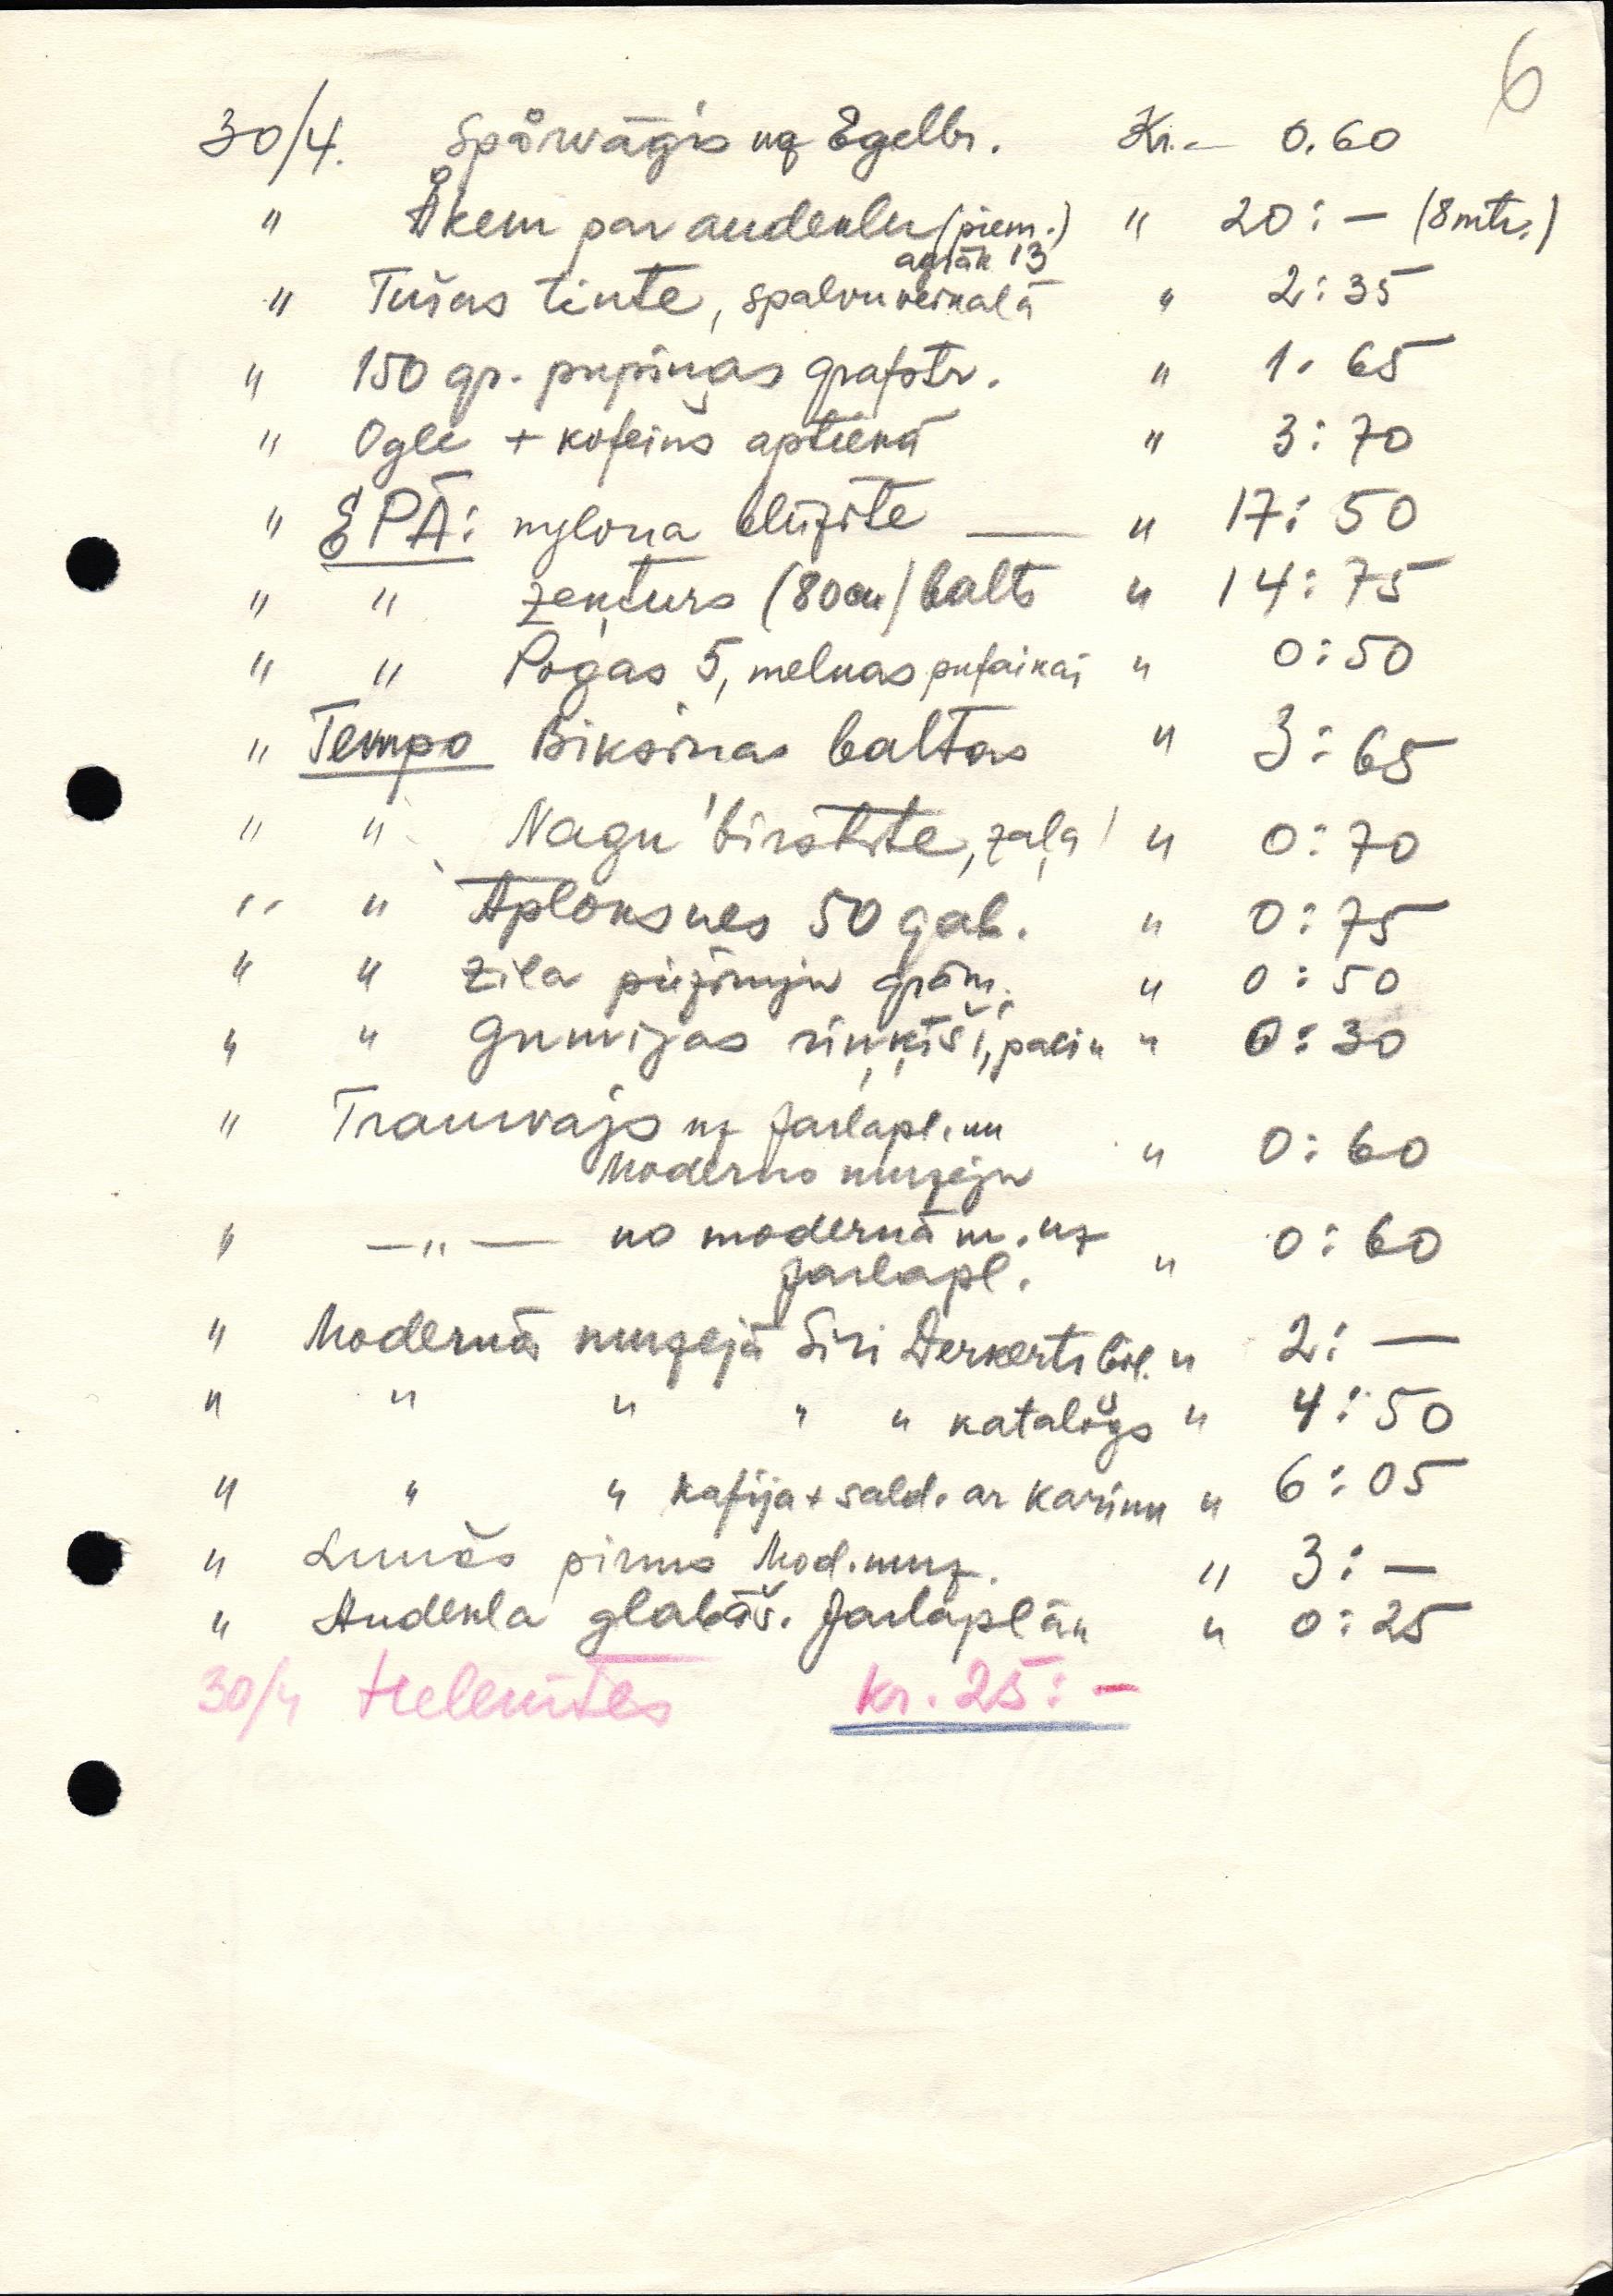 6
30/4. Spårvāgis uz Egelbr. Kr.— 0.60
" Åkem par audeklu (piem.) " 20:— (8mtr.)
agrāk 13
" Tušas tinte, spalvu veikalā " 2:35
" 150 gr. pupiņas grafstr. " 1.65
" Ogle + kofeīns aptiekā " 3:70
" EPĀ: nylona blūzīte — " 17:50
" " zeķturs (80cm) balts " 14:75
" " Pogas 5, melnas pufaikai " 0:50
" Tempo Biksiņas baltas " 3:65
" " Nagu birstīte, zaļa " 0:70
" " Aploksnes 50 gab. " 0:75
" " zila piezīmju grām. " 0:50
" " Gumijas riņķīši, paciņ " 0:30
" Tramvajs uz Jarlapl. un
Moderno muzeju " 0:60
" —"— no modernā m. uz " 0:60
Jarlapl.
" Modernā muzejā Siri Derkerts bil. " 2:—
" " " " " katalogs " 4:50
" " " kafija + sald. ar Kariņu " 6:05
" Lunčs pirms Mod. muz. " 3:—
" Audekla glabāš. Jarlaplān " 0:25
30/4 Helenītes kr. 25:—